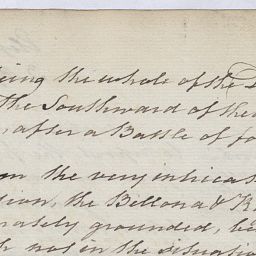 ing the whole of the
the Southward of the
after a Battle of fo
m the very intricat
sion, the Bellona &
nately grounded, be
not in the situatio